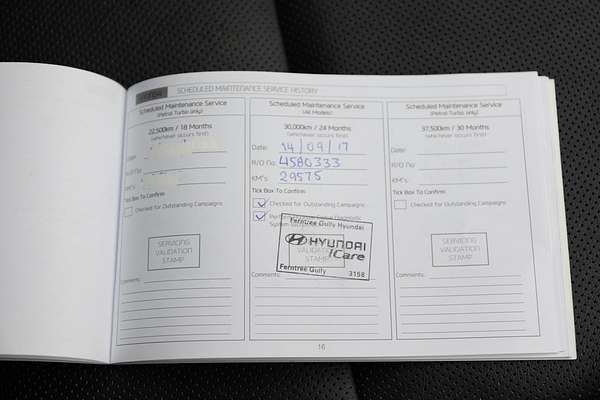 SCHEDULED MAINTENANCE SERVICE HISTORY
Scheduled Maintenance Service
(Petrol Turbo only)
22,500km / 18 Months
(whichever occurs first)
Date:
R/O no:
KM's:
Tick Box To Confirm:
Checked for Outstanding Campaigns
SERVICING
VALIDATION
STAMP
Comments:
Scheduled Maintenance Service
(All Models)
30,000km / 24 Months
(whichever occurs first)
Date: 14/09/17
R/O no: 4580333
KM's: 29575
Tick Box To Confirm:
Checked for Outstanding Campaigns
Diagnostic
System
Ferntree Gully Hyundai
HYUNDAI
iCare
Ferntree Gully 3156
Comments:
Scheduled Maintenance Service
(Petrol Turbo only)
37,500km / 30 Months
(whichever occurs first)
Date:
R/O no:
KM's:
Tick Box To Confirm:
Checked for Outstanding Campaigns
SERVICING
VALIDATION
STAMP
Comments:
16